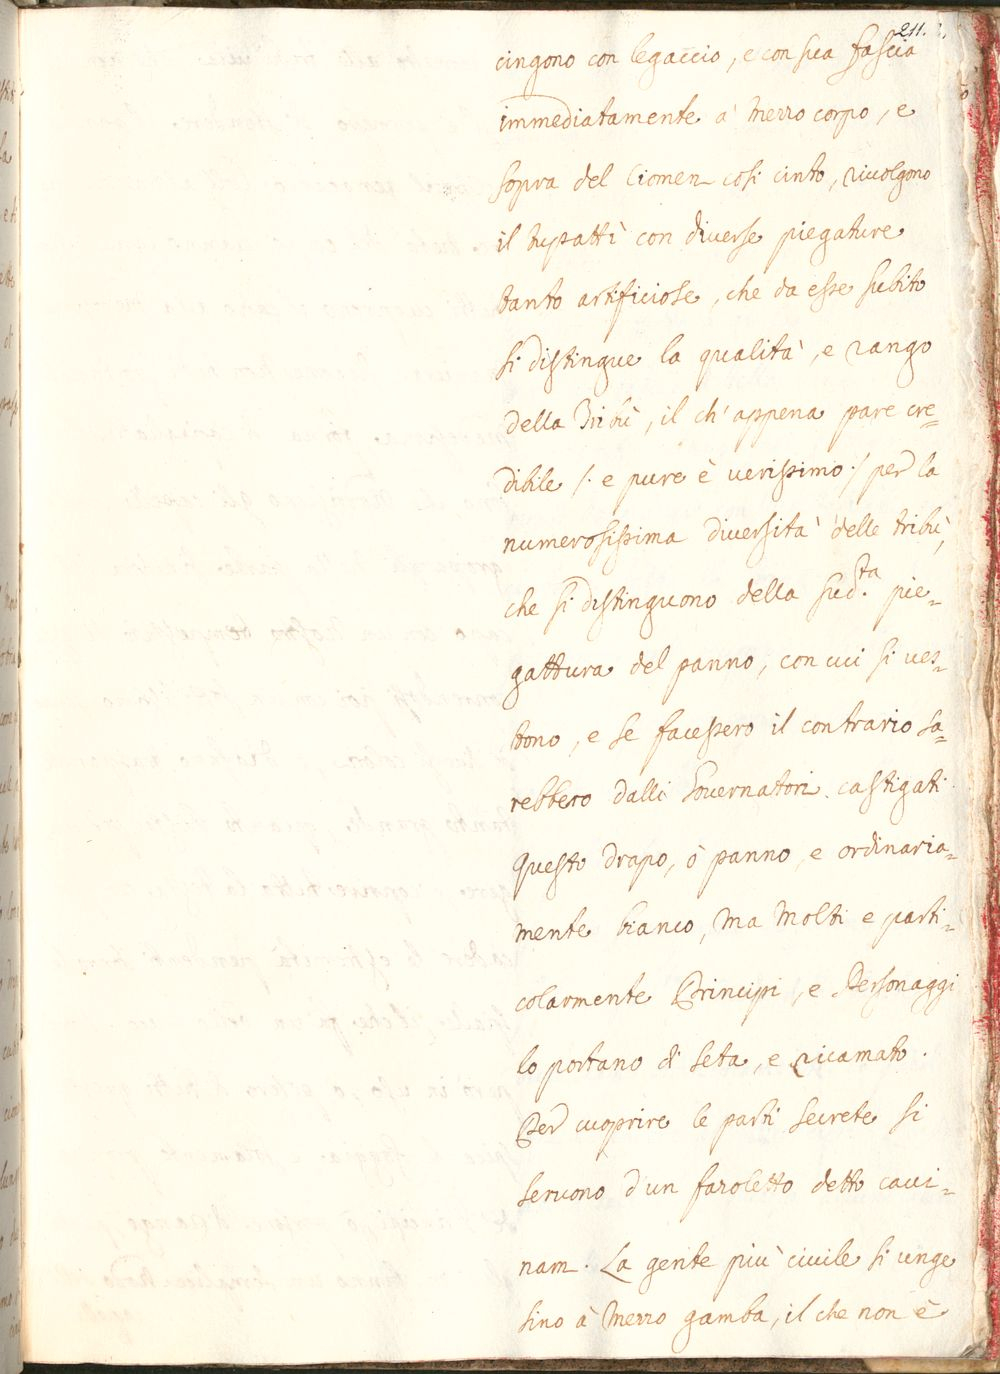 211.
cingono con legaccio, e con sua fascia
immediatamente a' mezzo corpo, e
sopra del Ciomen così cinto, rivolgono
il tupatti con diverse piegature
tanto artificiose, che da esse subito
si distingue la qualità, e rango
della Tribù, il ch' appena pare cre=
dibile /. e pure è verissimo ./ per la
numerosissima diversità delle tribù,
che si distinguono della sud.ta pie=
gattura del panno, con cui si ves=
tono, e se facessero il contrario sa=
rebbero dalli Governatori castigati.
Questo drapo, ò panno, e ordinaria=
mente bianco, ma molti e parti=
colarmente Principi, e Personaggi
lo portano di seta, e ricamato.
Per cuoprire le parti secrete si
servono d'un fazoletto detto cavi=
nam. La gente più civile si unge
sino à mezzo gamba, il che non è